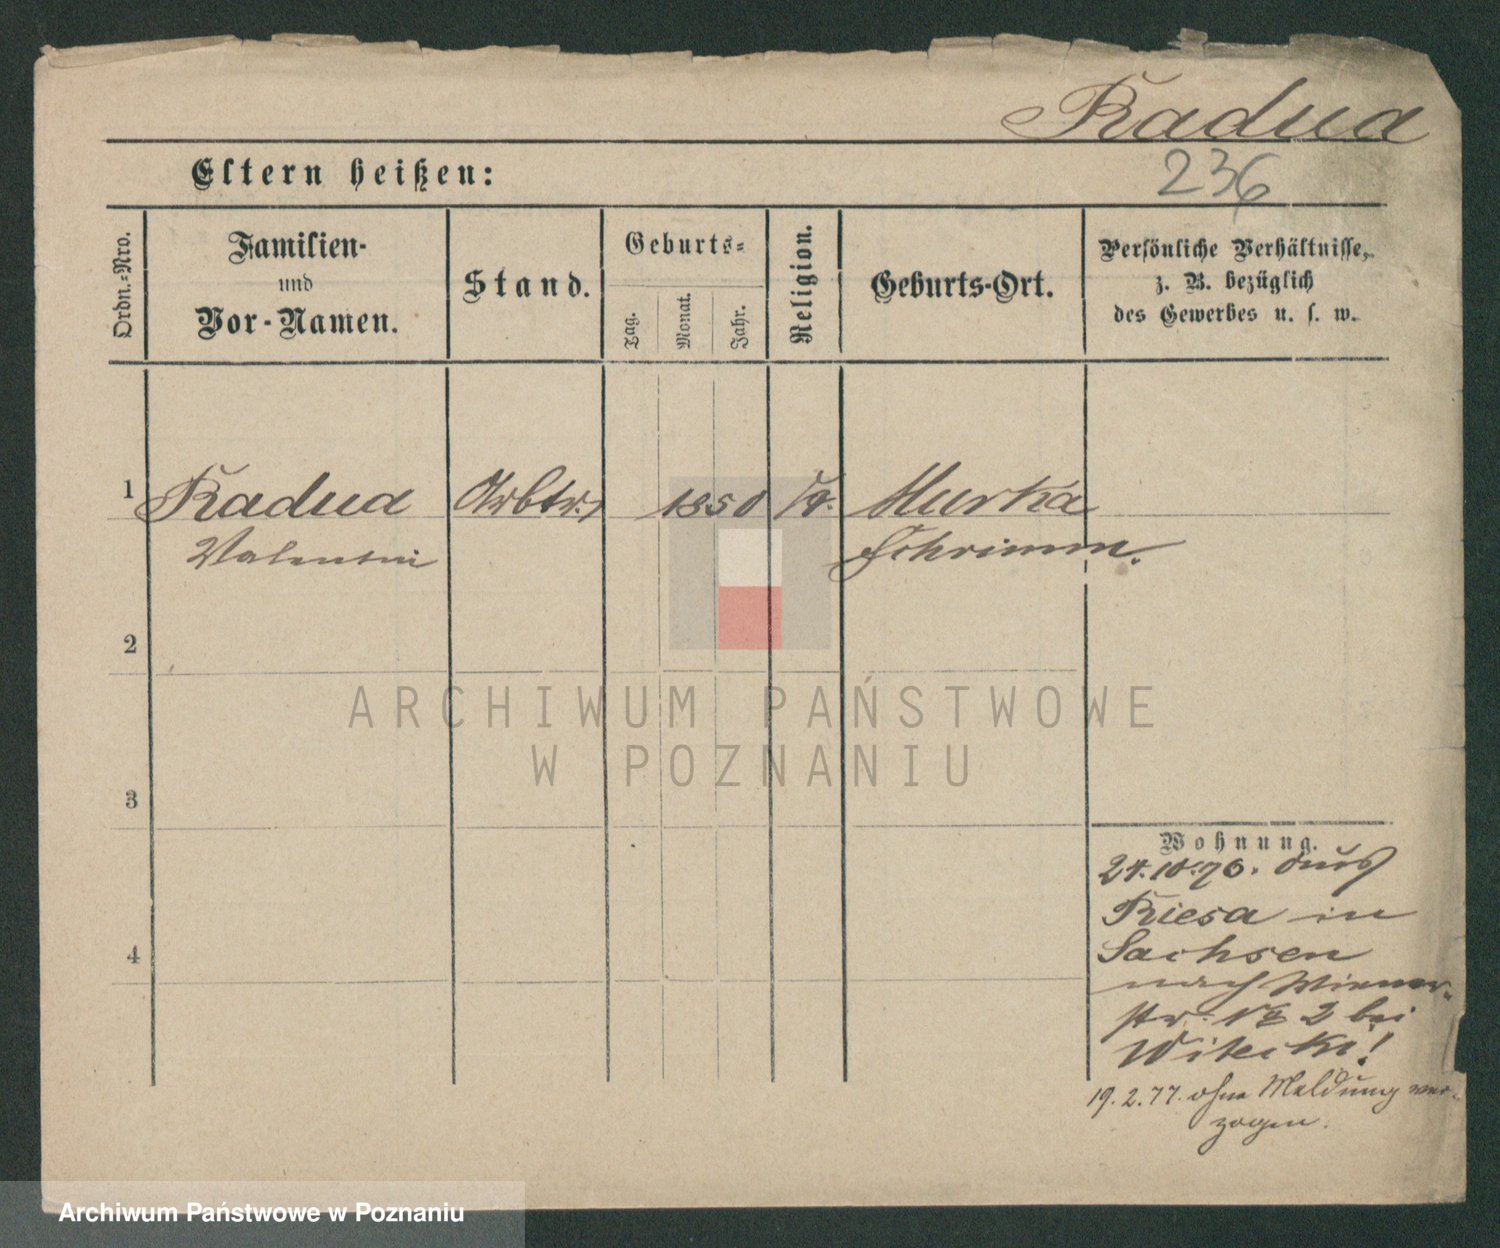 Radua
Eltern heißen:
236
Ordn.-Nro.
Familien-
und
Vor-Namen.
Stand.
Geburts-
Tag.
Monat.
Jahr.
Religion.
Geburts-Ort.
Persönliche Verhältnisse,
z. B. bezüglich
des Gewerbes u. s. w.
1 Radua Arbtr. 1850 Murka
Valentin Schrimm.
2
3
4
Wohnung.
24.10.76. aus
Riesa in
Sachsen
nach Wiener-
str. No 2 bei
Witecki!
19.2.77. ohne Meldung ver-
zogen.
ARCHIWUM PAŃSTWOWE
W POZNANIU
Archiwum Państwowe w Poznaniu